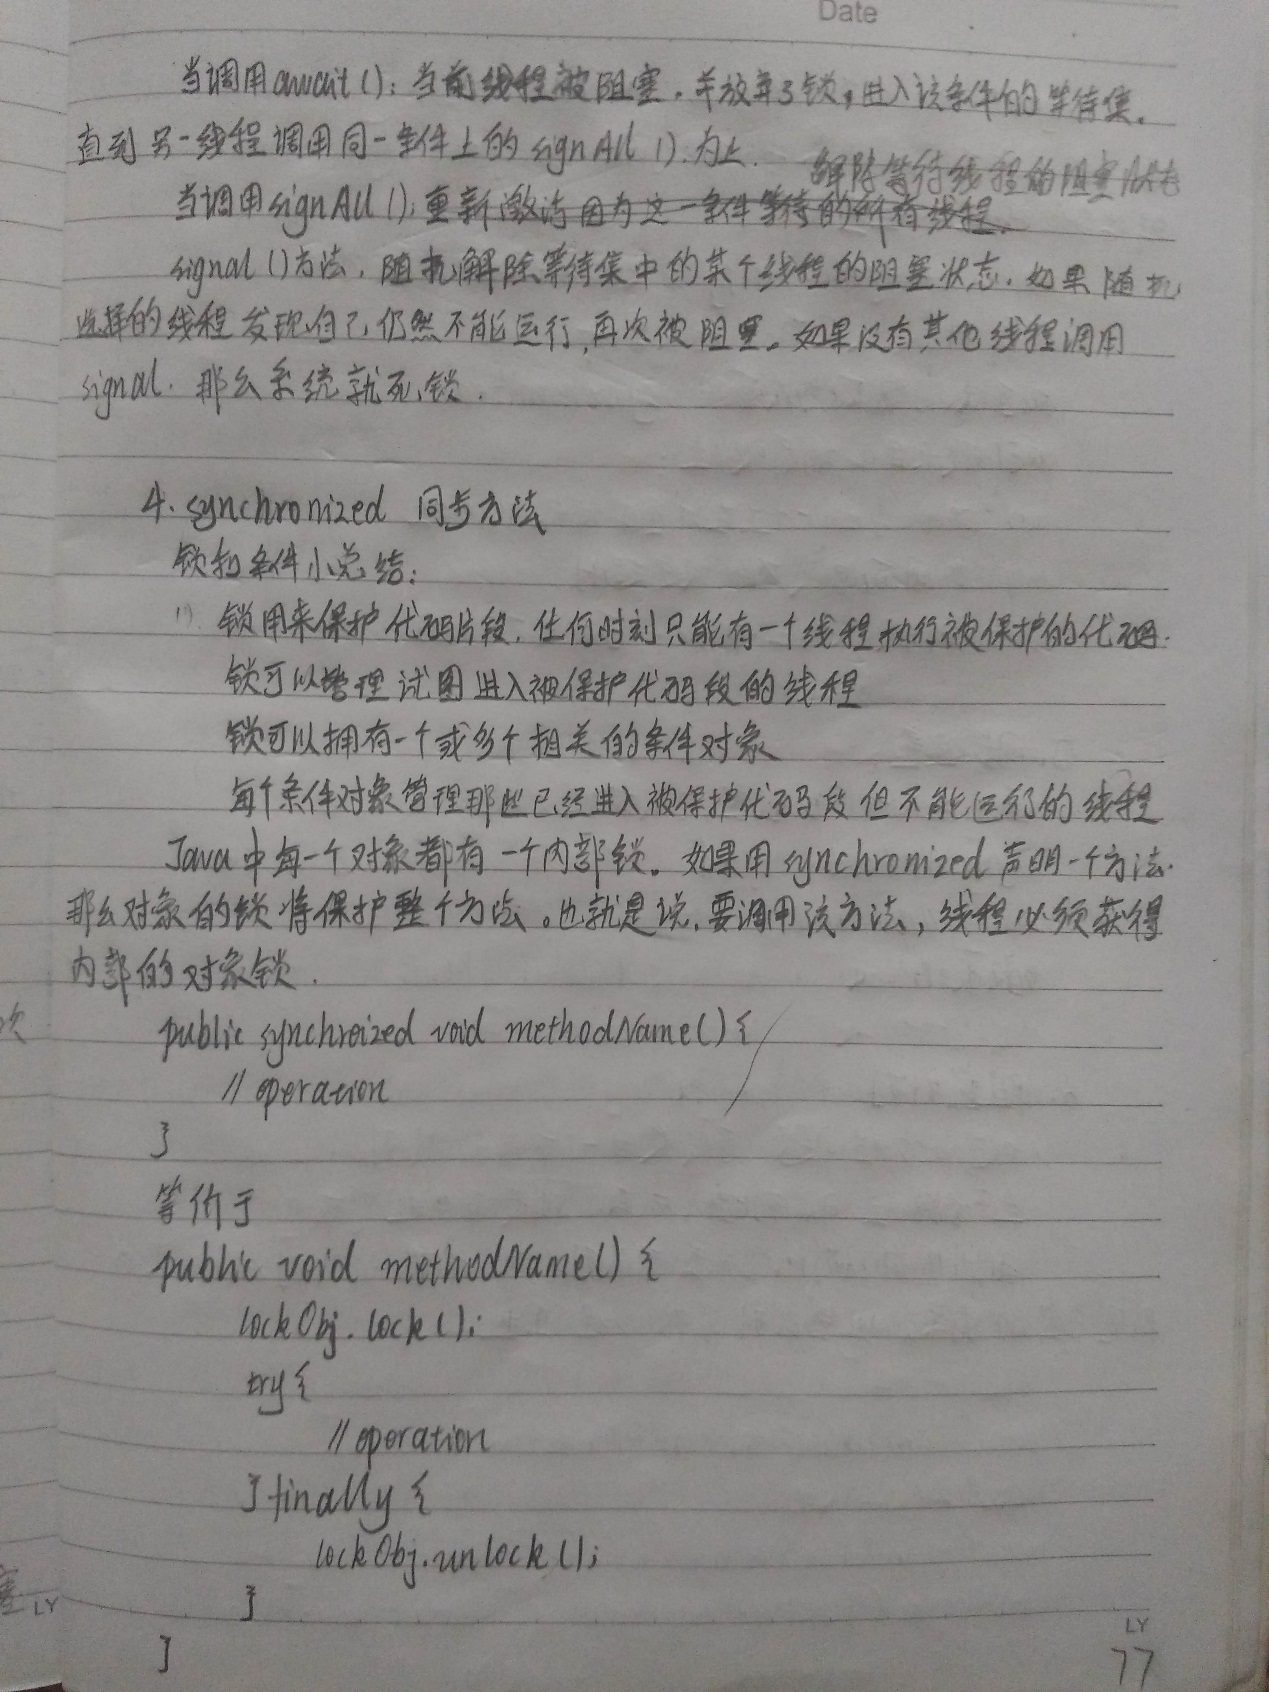 Date
当调用await(); 当前线程被阻塞. 并放弃了锁, 进入该条件的等待集.
直到另一线程调用同一条件上的signAll(). 为止.
解除等待线程的阻塞状态
当调用signAll(); 重新激活因为这一条件等待的所有线程.
signal()方法, 随机解除等待集中的某个线程的阻塞状态. 如果随机
选择的线程发现自己仍然不能运行, 再次被阻塞. 如果没有其他线程调用
signal. 那么系统就死锁.
4. synchronized 同步方法
锁和条件小总结:
1) 锁用来保护代码片段. 任何时刻只能有一个线程执行被保护的代码.
锁可以管理试图进入被保护代码段的线程
锁可以拥有一个或多个相关的条件对象
每个条件对象管理那些已经进入被保护代码段但不能运行的线程
Java中每一个对象都有一个内部锁. 如果用synchronized声明一个方法.
那么对象的锁将保护整个方法. 也就是说, 要调用该方法, 线程必须获得
内部的对象锁.
public synchroized void methodName() {
// operation
}
等价于
public void methodName() {
lockObj.lock();
try {
// operation
} finally {
lockObj.unlock();
}
}
LY
LY
77